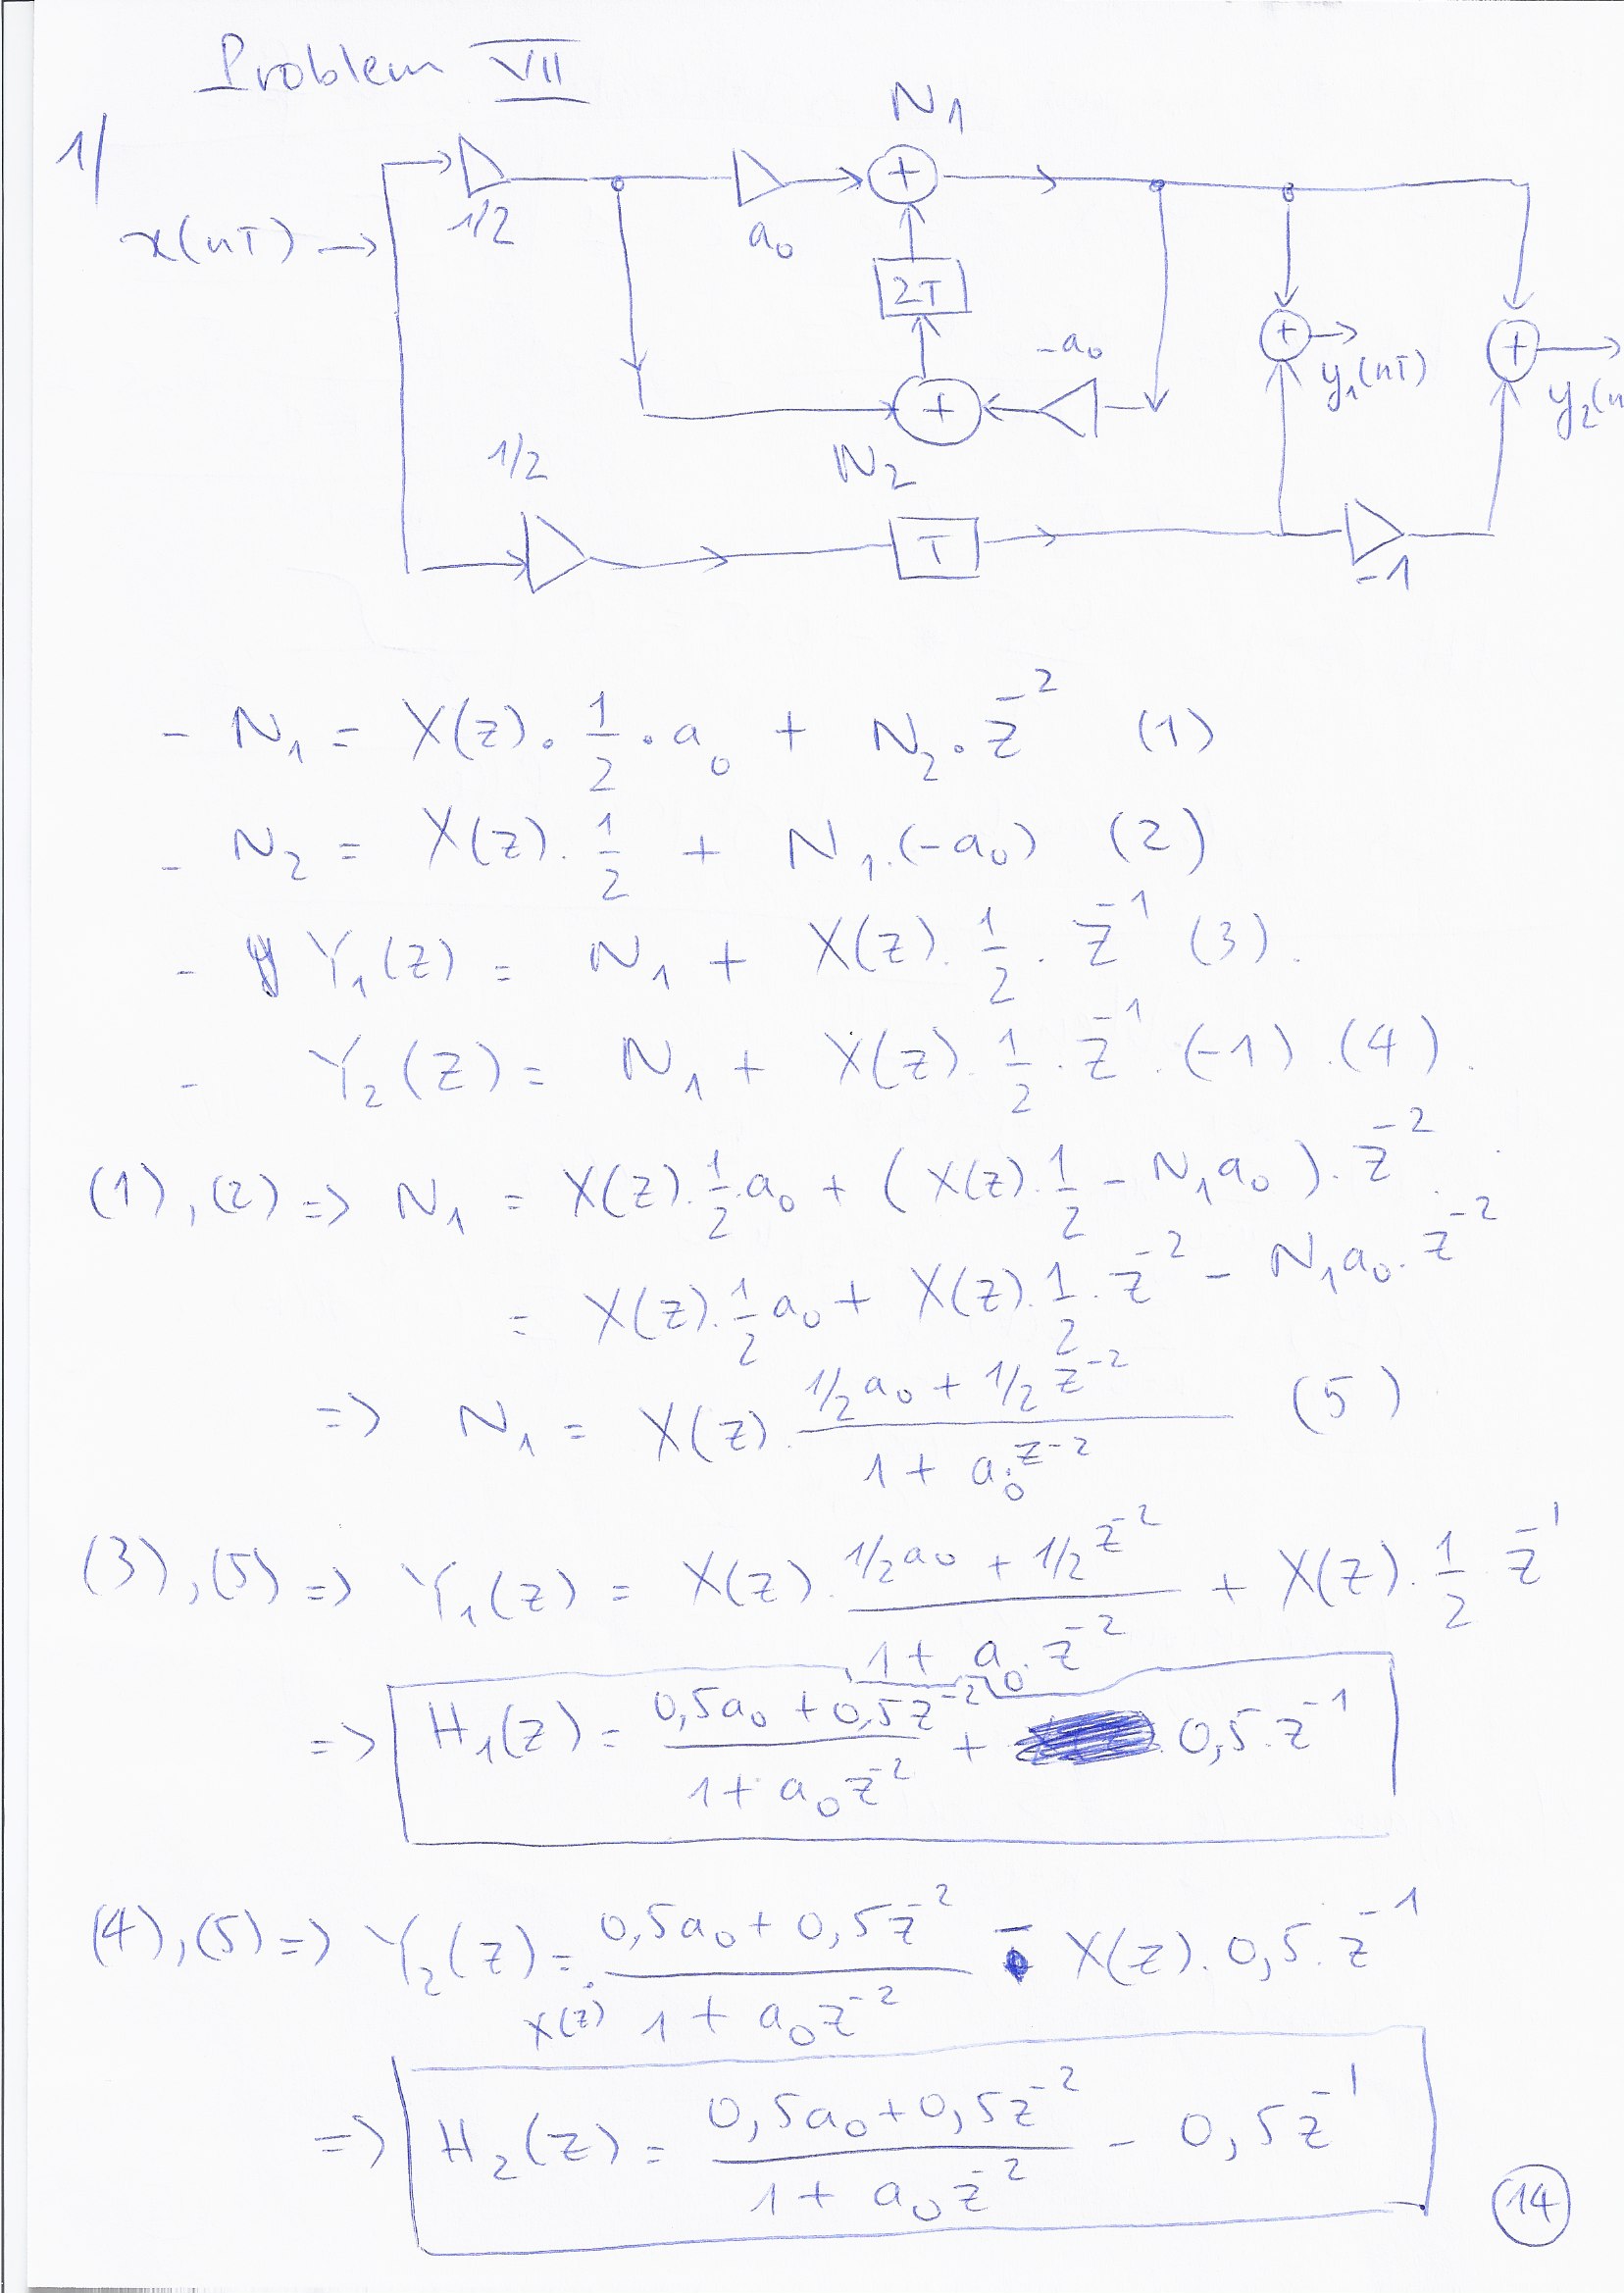 Problem VII
1/
N1
1/2
a0
x(nT) →
2T
-a0
+
y1(nT)
y2(n
N2
1/2
T
-1
- N1 = X(z) . 1/2 . a0 + N2 . z^-2 (1)
- N2 = X(z) . 1/2 + N1 . (-a0) (2)
- Y1(z) = N1 + X(z) . 1/2 . z^-1 (3).
- Y2(z) = N1 + X(z) . 1/2 . z^-1 . (-1) . (4).
(1), (2) => N1 = X(z) . 1/2 . a0 + (X(z) . 1/2 - N1 a0) . z^-2
= X(z) . 1/2 a0 + X(z) . 1/2 . z^-2 - N1 a0 . z^-2
=> N1 = X(z) . (1/2 a0 + 1/2 z^-2) / (1 + a0 . z^-2) (5)
(3), (5) => Y1(z) = X(z) . (1/2 a0 + 1/2 z^-2) / (1 + a0 . z^-2) + X(z) . 1/2 . z^-1
=> H1(z) = (0,5a0 + 0,5z^-2) / (1 + a0 z^-2) + 0,5 . z^-1
(4), (5) => Y2(z) = X(z) . (0,5a0 + 0,5z^-2) / (1 + a0 z^-2) - X(z) . 0,5 . z^-1
=> H2(z) = (0,5a0 + 0,5z^-2) / (1 + a0 z^-2) - 0,5z^-1
14